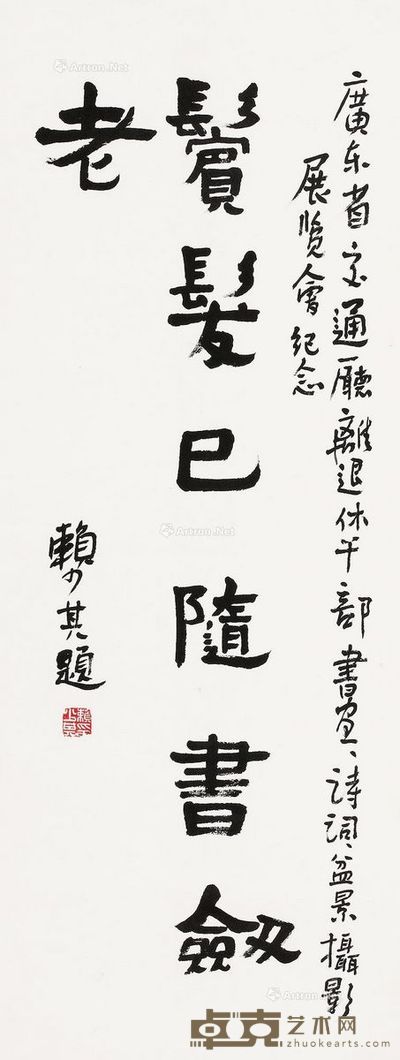 廣东省交通廳離退休干部書画、诗词、盆景攝影
展览會纪念
鬢髮已隨書劔
老
賴少其題
Artron.Net
Artron.Net
Artron.Net
卓克艺术网
zhuokearts.com